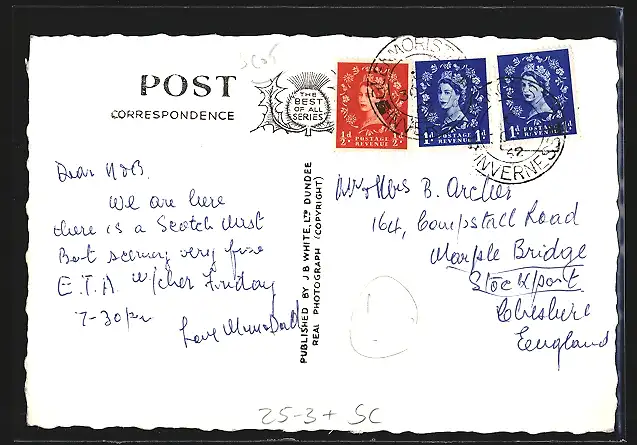 SCOT
POST
CORRESPONDENCE
THE
BEST
OF ALL
SERIES
½d POSTAGE REVENUE ½d
1d POSTAGE REVENUE 1d
1d POSTAGE REVENUE
INVERNESS
Dear N & B.
We are here
there is a Scotch Mist
But scenery very fine
E.T.A. Friday
7-30 pm
Love Mum & Dad
PUBLISHED BY J B WHITE, LTD DUNDEE
REAL PHOTOGRAPH (COPYRIGHT)
Mr & Mrs B. Archer
164, Compstall Road
Marple Bridge
Stockport
Cheshire
England
25-3+ SC